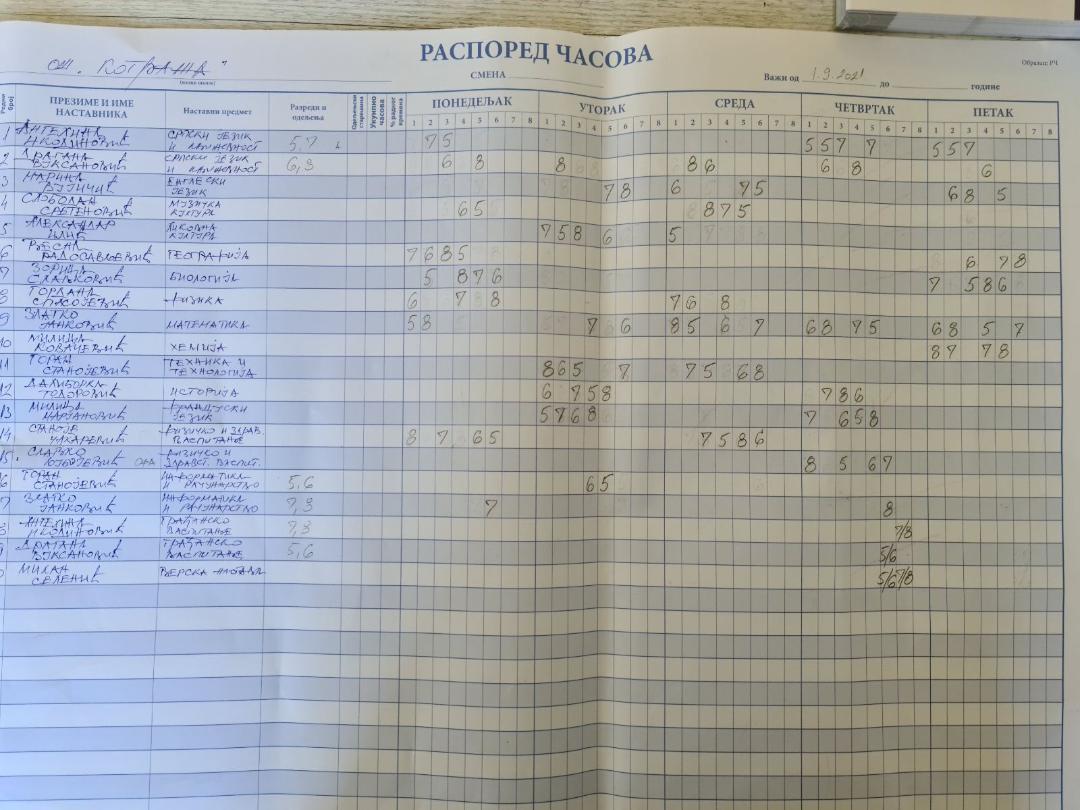 РАСПОРЕД ЧАСОВА
Образац РЧ
ОШ. "КОТРАЖА"
СМЕНА
Важи од 1.9.2021 до године
Редни број
ПРЕЗИМЕ И ИМЕ НАСТАВНИКА
Наставни предмет
Разреди и одељења
Одељењски старешина
Укупно часова
% радног времена
ПОНЕДЕЉАК
УТОРАК
СРЕДА
ЧЕТВРТАК
ПЕТАК
1 2 3 4 5 6 7 8 1 2 3 4 5 6 7 8 1 2 3 4 5 6 7 8 1 2 3 4 5 6 7 8 1 2 3 4 5 6 7 8
1 АНГЕЛИНА НИКОЛИНОВИЋ СРПСКИ ЈЕЗИК И КЊИЖЕВНОСТ 5,7 7 5 5 5 7 7 5 5 7
2 ДРАГАНА ВУКСАНОВИЋ СРПСКИ ЈЕЗИК И КЊИЖЕВНОСТ 6,8 6 8 8 8 6 6 8 6
3 МАРИНА ВУЈИЧИЋ ЕНГЛЕСКИ ЈЕЗИК 7 8 6 7 5 6 8 5
4 СЛОБОДАН СРЕТЕНОВИЋ МУЗИЧКА КУЛТУРА 6 5 8 7 5
5 АЛЕКСАНДАР ИЛИЋ ЛИКОВНА КУЛТУРА 7 5 8 6 5
6 ВЕСНА РАДОСАВЉЕВИЋ ГЕОГРАФИЈА 7 6 8 5 6 7 8
7 ЗОРИЦА СЛАВКОВИЋ БИОЛОГИЈА 5 8 7 6 7 5 8 6
8 ГОРДАНА СПАСОЈЕВИЋ ФИЗИКА 6 7 8 7 6 8
9 ЗЛАТКО ЈАНКОВИЋ МАТЕМАТИКА 5 8 7 6 8 5 6 7 6 8 7 5 6 8 5 7
10 МИЛИЦА КОВАЧЕВИЋ ХЕМИЈА 8 7 7 8
11 ГОРАН СТАНОЈЕВИЋ ТЕХНИКА И ТЕХНОЛОГИЈА 8 6 5 7 7 5 6 8
12 ДАЛИБОРКА ТОДОРОВИЋ ИСТОРИЈА 6 7 5 8 7 8 6
13 МИЛИЦА МАРЈАНОВИЋ ФРАНЦУСКИ ЈЕЗИК 5 7 6 8 7 6 5 8
14 СТАНОЈЕ ФИЗИЧКО И ЗДРАВ. ВАСПИТАЊЕ 8 7 6 5 7 5 8 6
15. СЛАВКО ФИЗИЧКО И ЗДРАВСТ. ВАСПИТ. 8 5 6 7
16 ГОРАН СТАНОЈЕВИЋ ИНФОРМАТИКА И РАЧУНАРСТВО 5,6 6 5
17 ЗЛАТКО ЈАНКОВИЋ ИНФОРМАТИКА И РАЧУНАРСТВО 7,8 7 8
18 АНГЕЛИНА НИКОЛИНОВИЋ ГРАЂАНСКО ВАСПИТАЊЕ 7,8 7/8
19 ДРАГАНА ВУКСАНОВИЋ ГРАЂАНСКО ВАСПИТАЊЕ 5,6 5/6
20 МИЛАН СЕЛЕНИЋ ВЕРСКА НАСТАВА 5/6 7/8